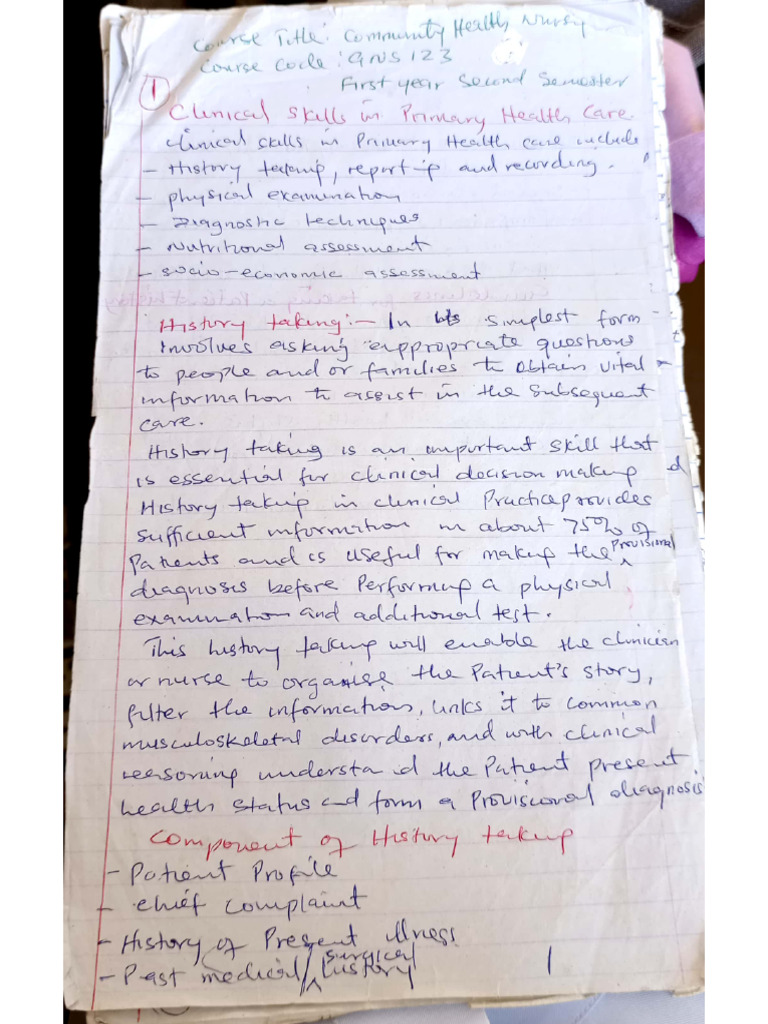 Course Title: Community Health Nursing
Course Code: GNS 123
First year Second Semester
1
Clinical Skills in Primary Health Care
Clinical skills in Primary Health care include
- History taking, reporting and recording.
- physical examination
- Diagnostic techniques
- Nutritional assessment
- socio-economic assessment
History taking:- In its simplest form
involves asking appropriate questions
to people and or families to obtain vital
information to assist in the subsequent
care.
History taking is an important skill that
is essential for clinical decision making
History taking in clinical Practice provides
sufficient information in about 75% of
Patients and is useful for making the Provisional
diagnosis before Performing a physical
examination and additional test.
This history taking will enable the clinician
or nurse to organise the Patient's story,
filter the information, links it to common
musculoskeletal disorders, and with clinical
reasoning understand the Patient present
health status and form a Provisional diagnosis
Component of History taking
- Patient Profile
- Chief Complaint
- History of Present illness
- Past medical/surgical history
1